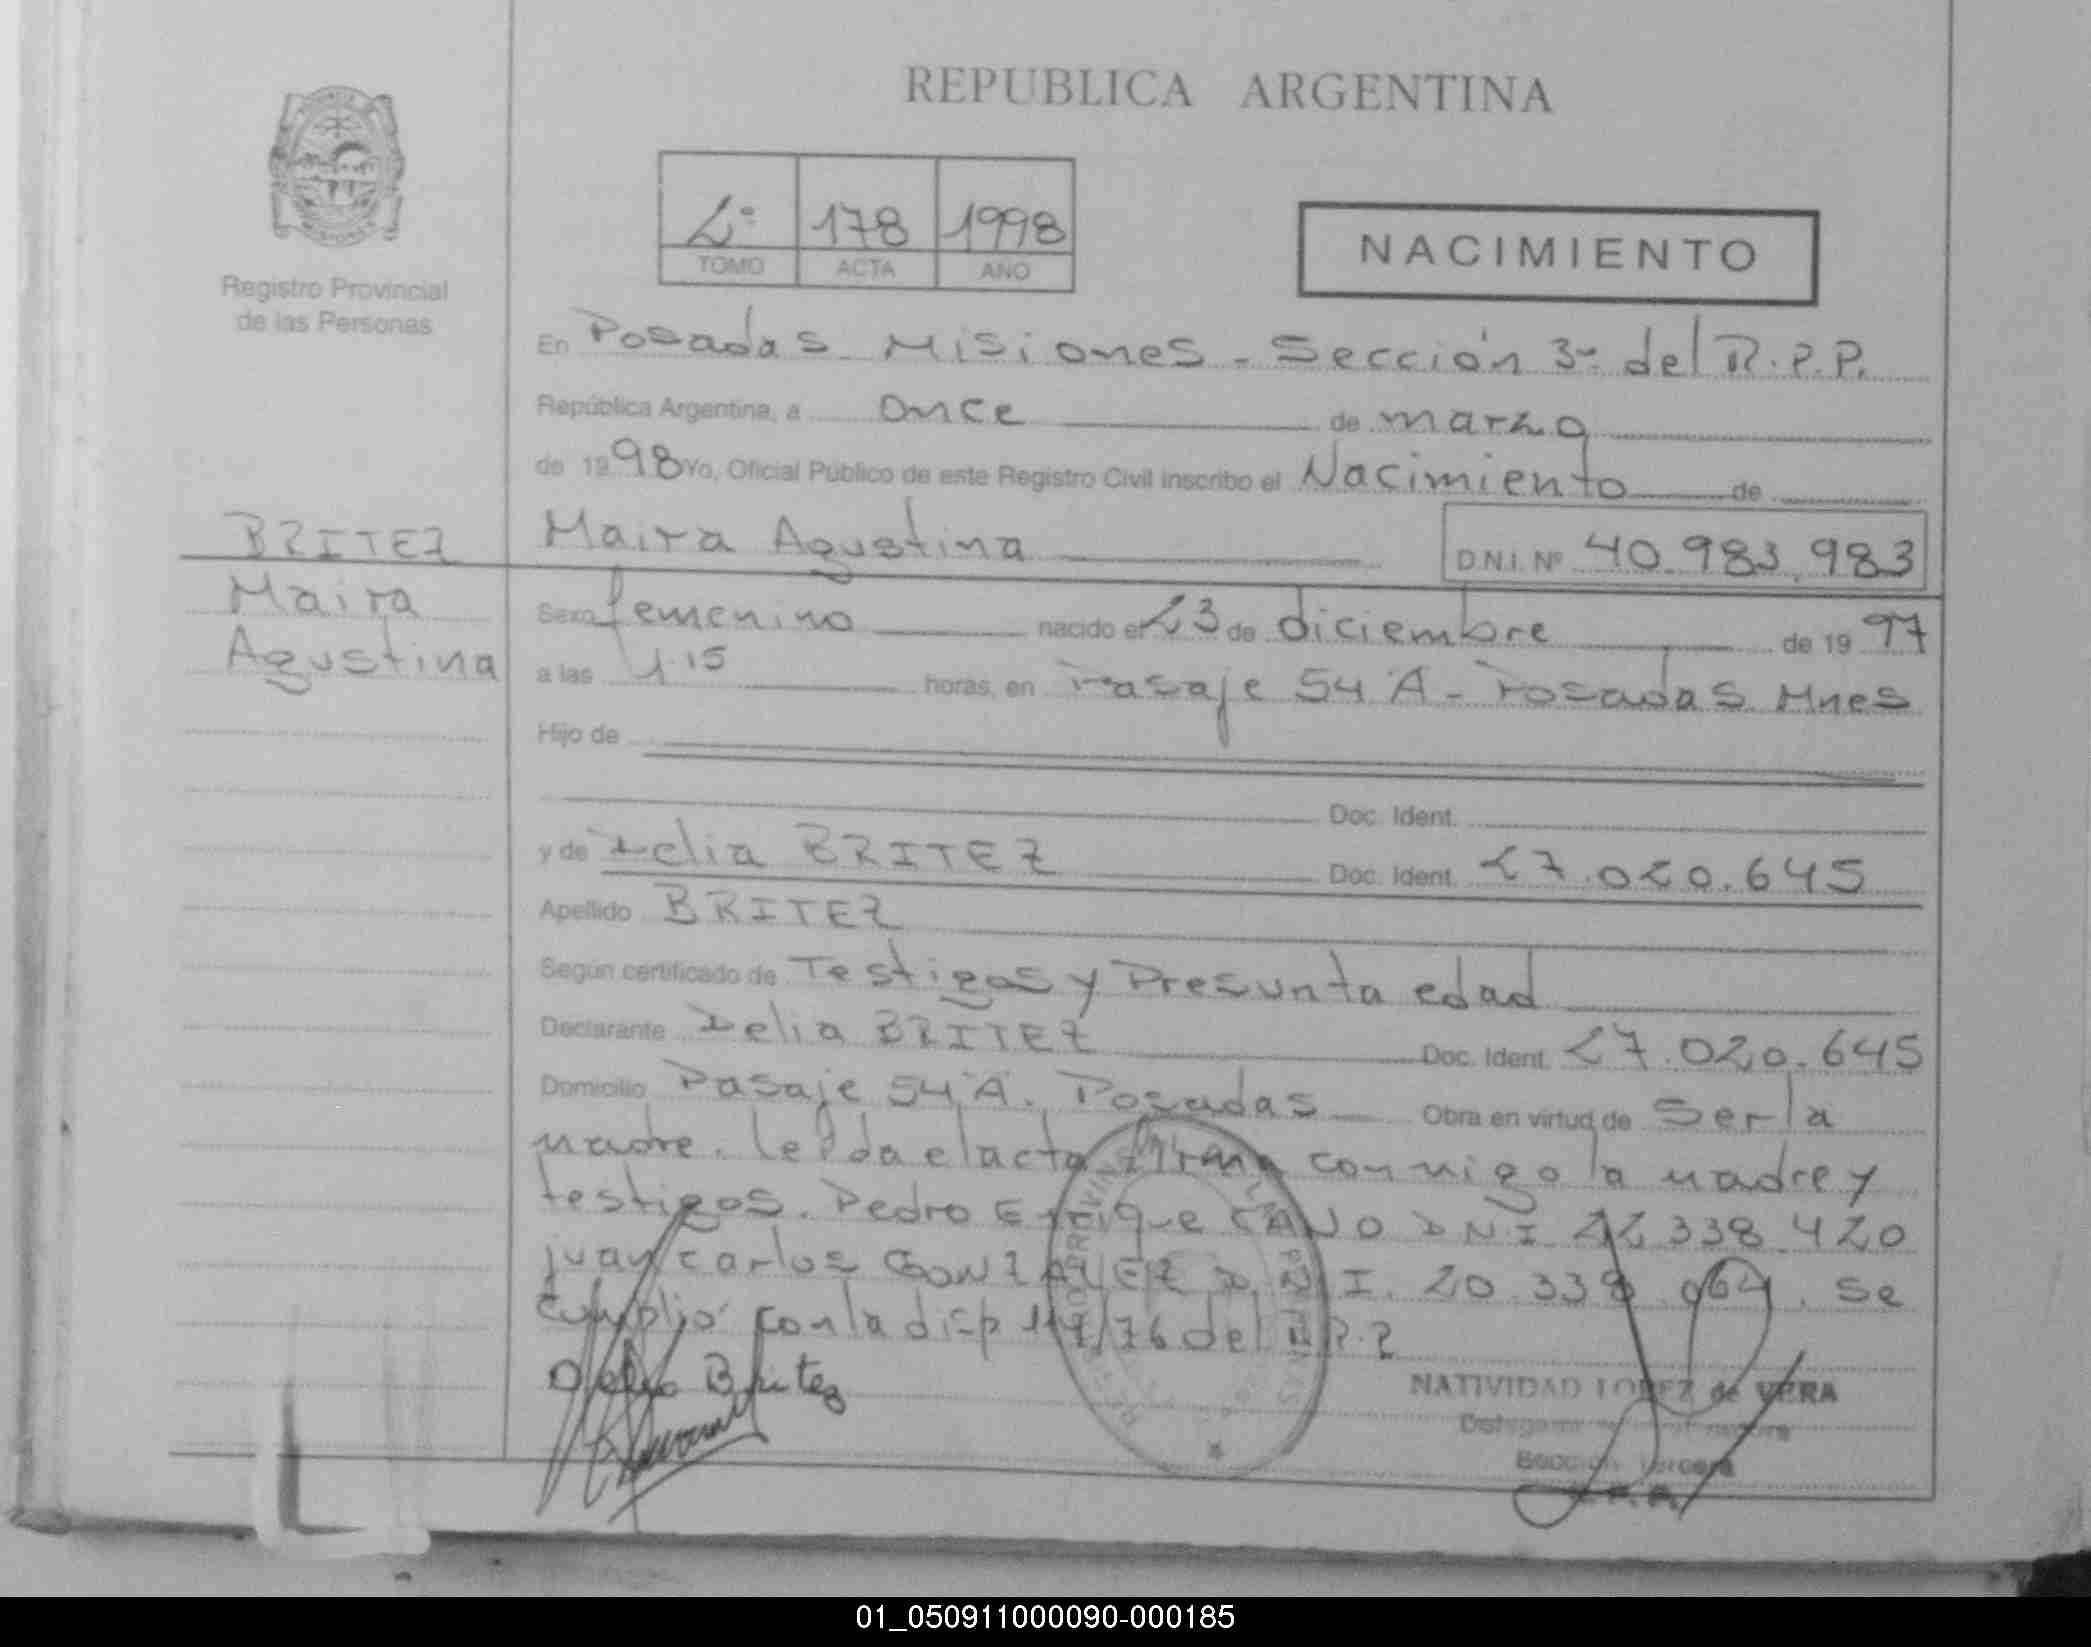 REPUBLICA ARGENTINA
2º 178 1998
TOMO ACTA AÑO
NACIMIENTO
Registro Provincial
de las Personas
En Posadas Misiones - Sección 3ª del R.P.P.
República Argentina, a once de marzo
de 1998 Yo, Oficial Público de este Registro Civil inscribo el Nacimiento de
BRITEZ
Maira
Agustina
Maira Agustina D.N.I. Nº 40.983.983
Sexo femenino nacido el 23 de diciembre de 1997
a las 1.15 horas, en Pasaje 54 A - Posadas Mnes
Hijo de
Doc. Ident.
y de Delia BRITEZ Doc. Ident. 27.020.645
Apellido BRITEZ
Según certificado de Testigos y Presunta edad
Declarante Delia BRITEZ Doc. Ident. 27.020.645
Domicilio Pasaje 54 A. Posadas Obra en virtud de Ser la
madre. leída el acta firma conmigo la madre y
testigos. Pedro Enrique CANO DNI 22.338.420
juan carlos GONZALEZ D.N.I. 20.338.064. Se
cumplió con la disp 117/76 del R.P.P
Delia Britez
NATIVIDAD LOPEZ de VERA
Sección Tercera
01_050911000090-000185